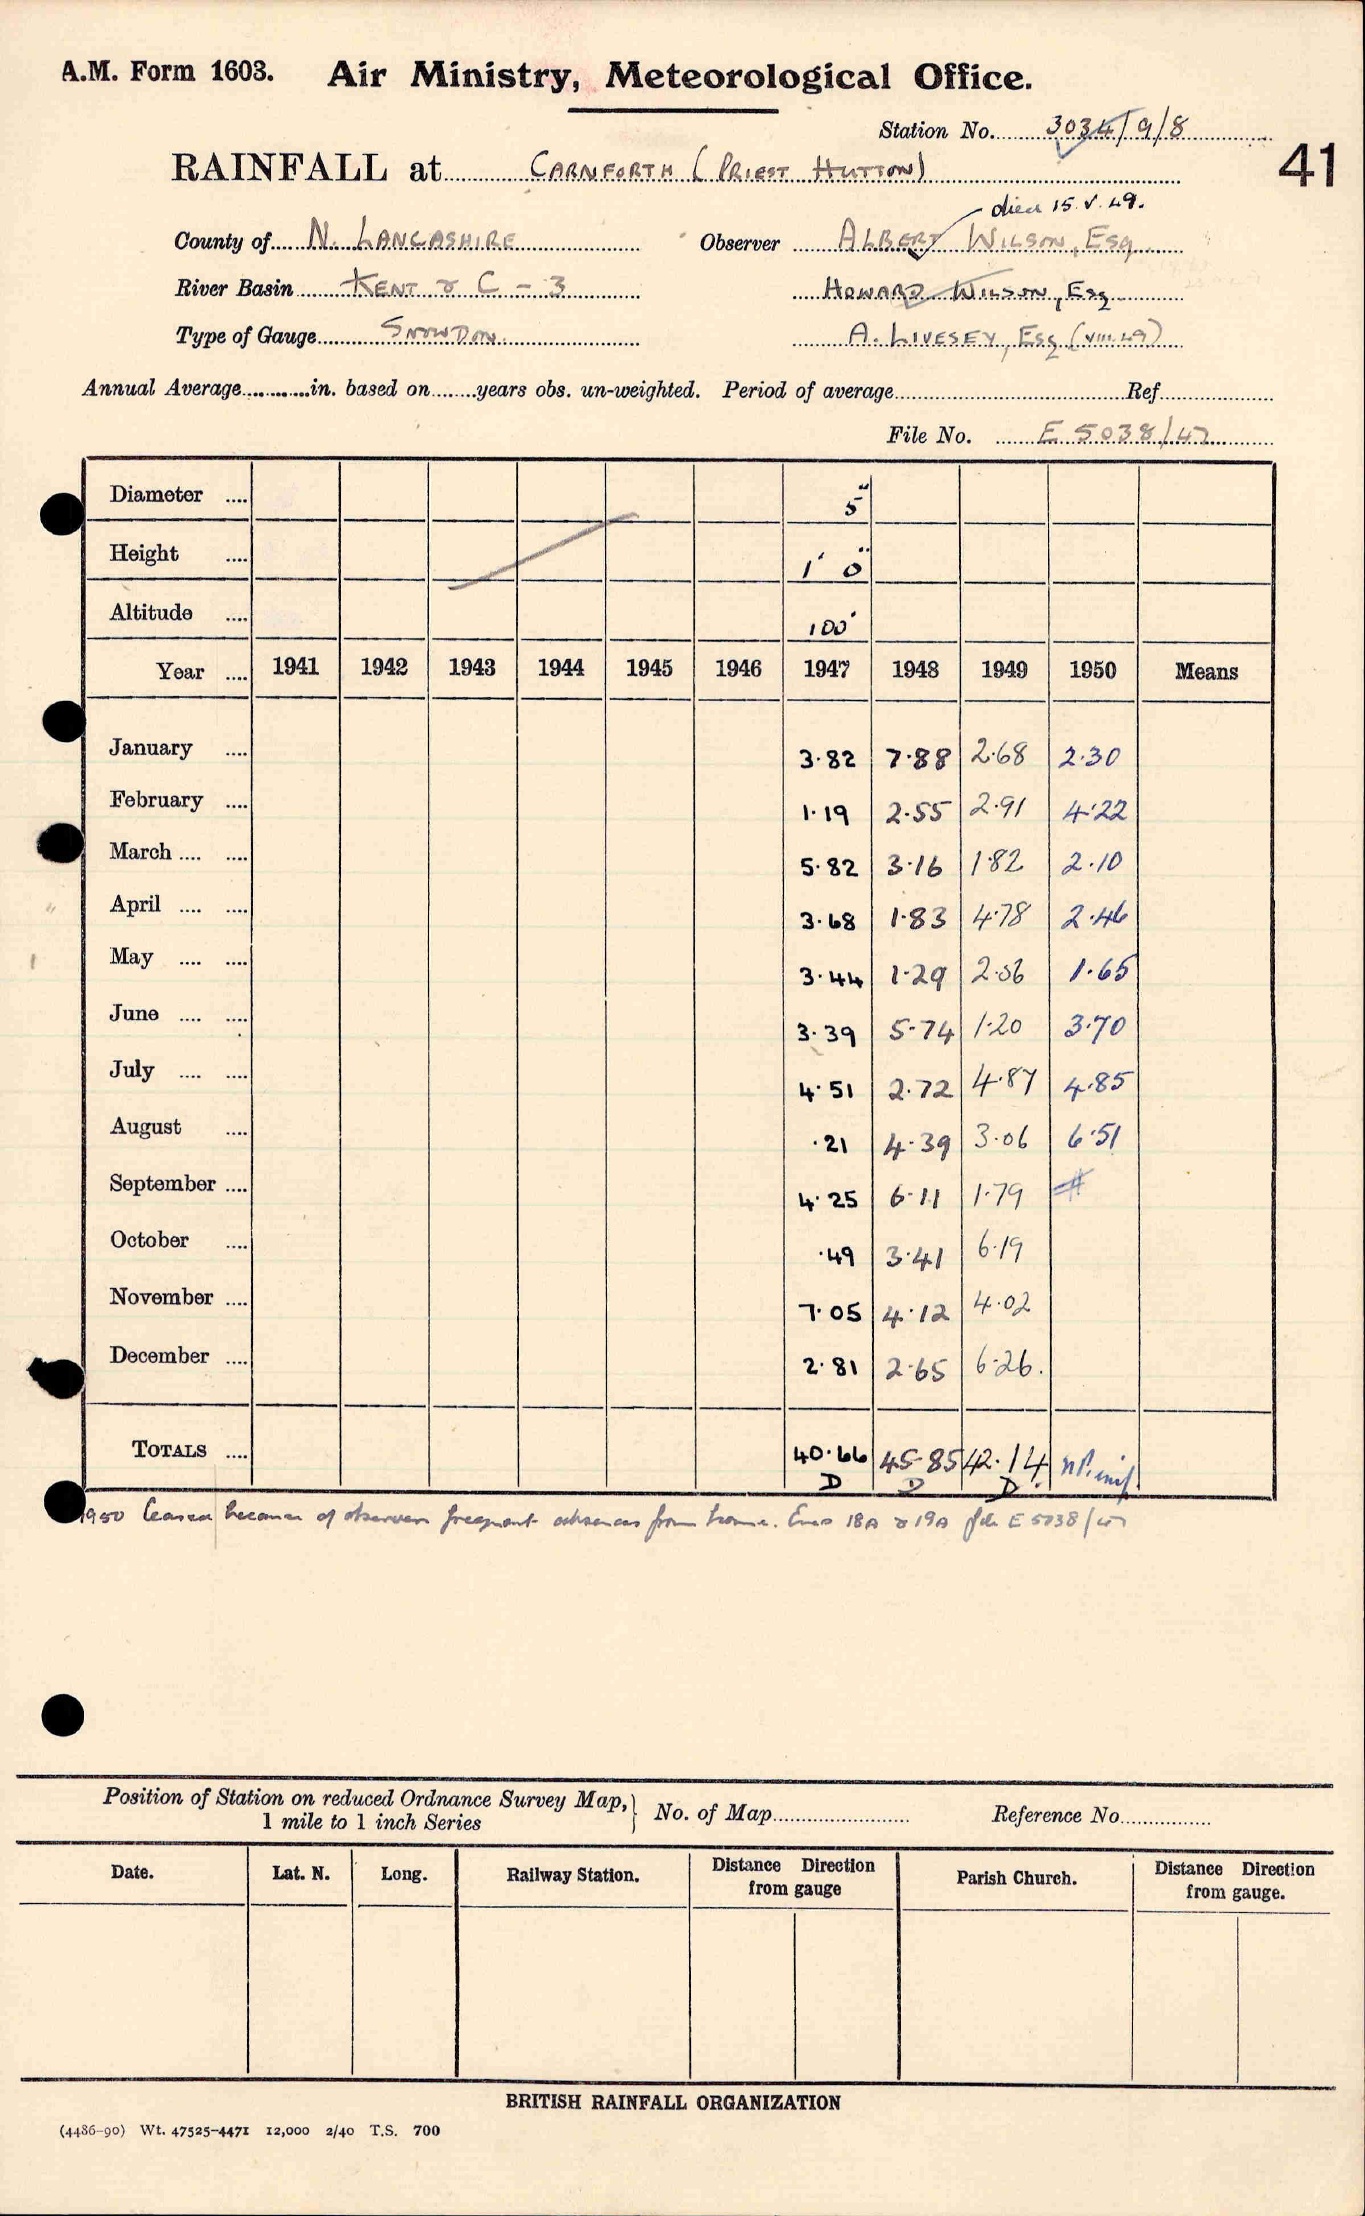 A.M. Form 1603. Air Ministry, Meteorological Office.
Station No. 3034/9/8
41
RAINFALL at CARNFORTH (PRIEST HUTTON)
died 15.V.49.
County of N. LANCASHIRE Observer ALBERT WILSON, ESQ
River Basin KENT & C - 3 HOWARD WILSON, ESQ
Type of Gauge SNOWDON. A. LIVESEY, ESQ (VIII.49)
Annual Average in. based on years obs. un-weighted. Period of average Ref
File No. E 5038/47
Diameter 5"
Height 1' 0"
Altitude 100'
Year 1941 1942 1943 1944 1945 1946 1947 1948 1949 1950 Means
January 3.82 7.88 2.68 2.30
February 1.19 2.55 2.91 4.22
March 5.82 3.16 1.82 2.10
April 3.68 1.83 4.78 2.46
May 3.44 1.29 2.56 1.65
June 3.39 5.74 1.20 3.70
July 4.51 2.72 4.87 4.85
August .21 4.39 3.06 6.51
September 4.25 6.11 1.79 #
October .49 3.41 6.19
November 7.05 4.12 4.02
December 2.81 2.65 6.26.
TOTALS 40.66 45.85 42.14
D D D
1950 Ceased because of observers frequent absences from home. Encs 18A & 19A file E 5038/47
Position of Station on reduced Ordnance Survey Map, 1 mile to 1 inch Series } No. of Map Reference No.
Date. Lat. N. Long. Railway Station. Distance Direction from gauge Parish Church. Distance Direction from gauge.
BRITISH RAINFALL ORGANIZATION
(4486-90) Wt. 47525-4471 12,000 2/40 T.S. 700